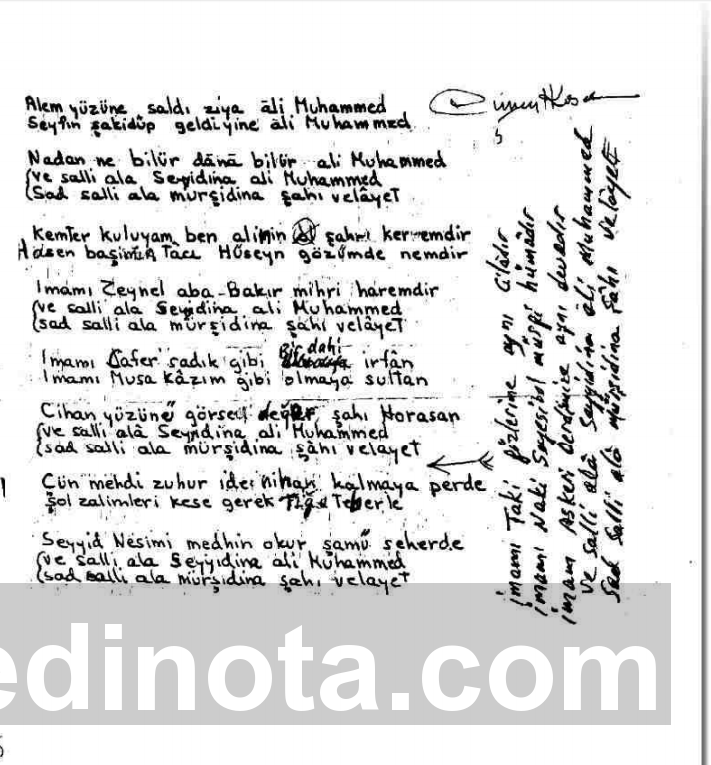 Alem yüzüne saldı ziya âli Muhammed
Seyfin şakidüp geldi yine âli Muhammed
Nadan ne bilür dânâ bilür ali Muhammed
(ve salli ala Seyidina ali Muhammed
(Sad salli ala mürşidina şahı velâyet
Kemter kuluyam ben alinin şahrı keremdir
Hasen başımA Tacı Hüseyn gözümde nemdir
İmamı Zeynel aba-Bakır mihri haremdir
(ve salli ala Seyidina ali Muhammed
(sad salli ala mürşidina şahı velâyet
Bir dahi
İmamı Cafer sadık gibi irfân
İmamı Musa kâzım gibi olmaya sultan
Cihan yüzünü görse değer şahı Horasan
(ve salli alâ Seyyidina ali Muhammed
(sad salli ala mürşidina şâhı velayet
Çün mehdi zuhur ide nihan kalmaya perde
Şol zalimleri kese gerek Tiğu Teberle
Seyyid Nesimi medhin okur şamü seherde
(ve salli ala Seyyidina ali Muhammed
(sad salli ala mürşidina şahı velayet
imamı Taki gözlerime aynı cilâdır
imamı Naki Sayesibol mürgi hümâdır
imam Askeri derdimize aynı devadır
ve salli alâ Seyyidina ali Muhammed
Sad salli alâ mürşidina şâhı velâyet
edinota.com